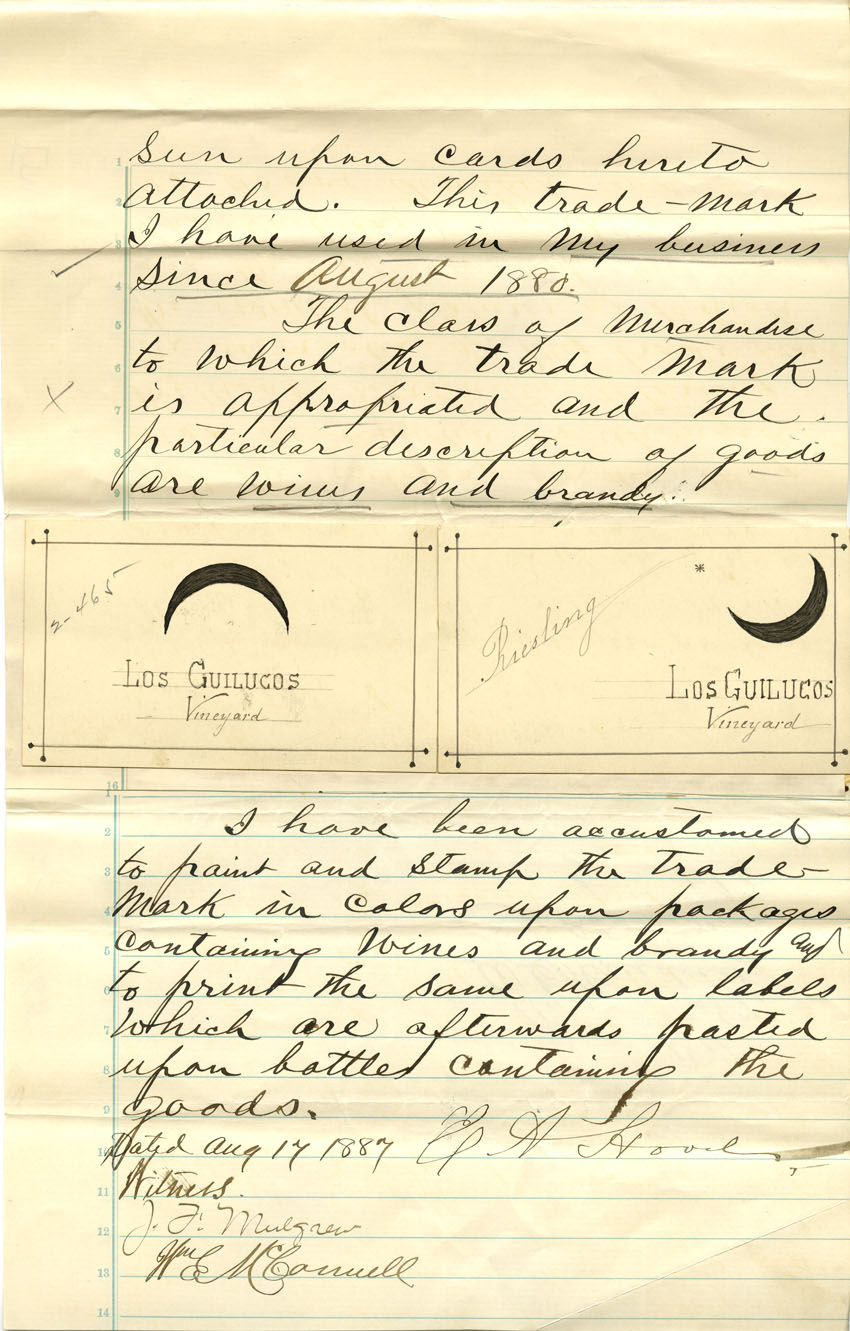 seen upon cards hereto
attached. This trade-mark
I have used in my business
since August 1880.
The class of merchandise
to which the trade mark
is appropriated and the
particular description of goods
are wines and brandy.
2-465
Los Guilucos
Vineyard
Riesling
*
Los Guilucos
Vineyard
I have been accustomed
to paint and stamp the trade-
mark in colors upon packages
containing wines and brandy and
to print the same upon labels
which are afterwards pasted
upon bottles containing the
goods.
Dated Aug 17 1887
Witness.
J. F. Mulgrew
Wm E McConnell